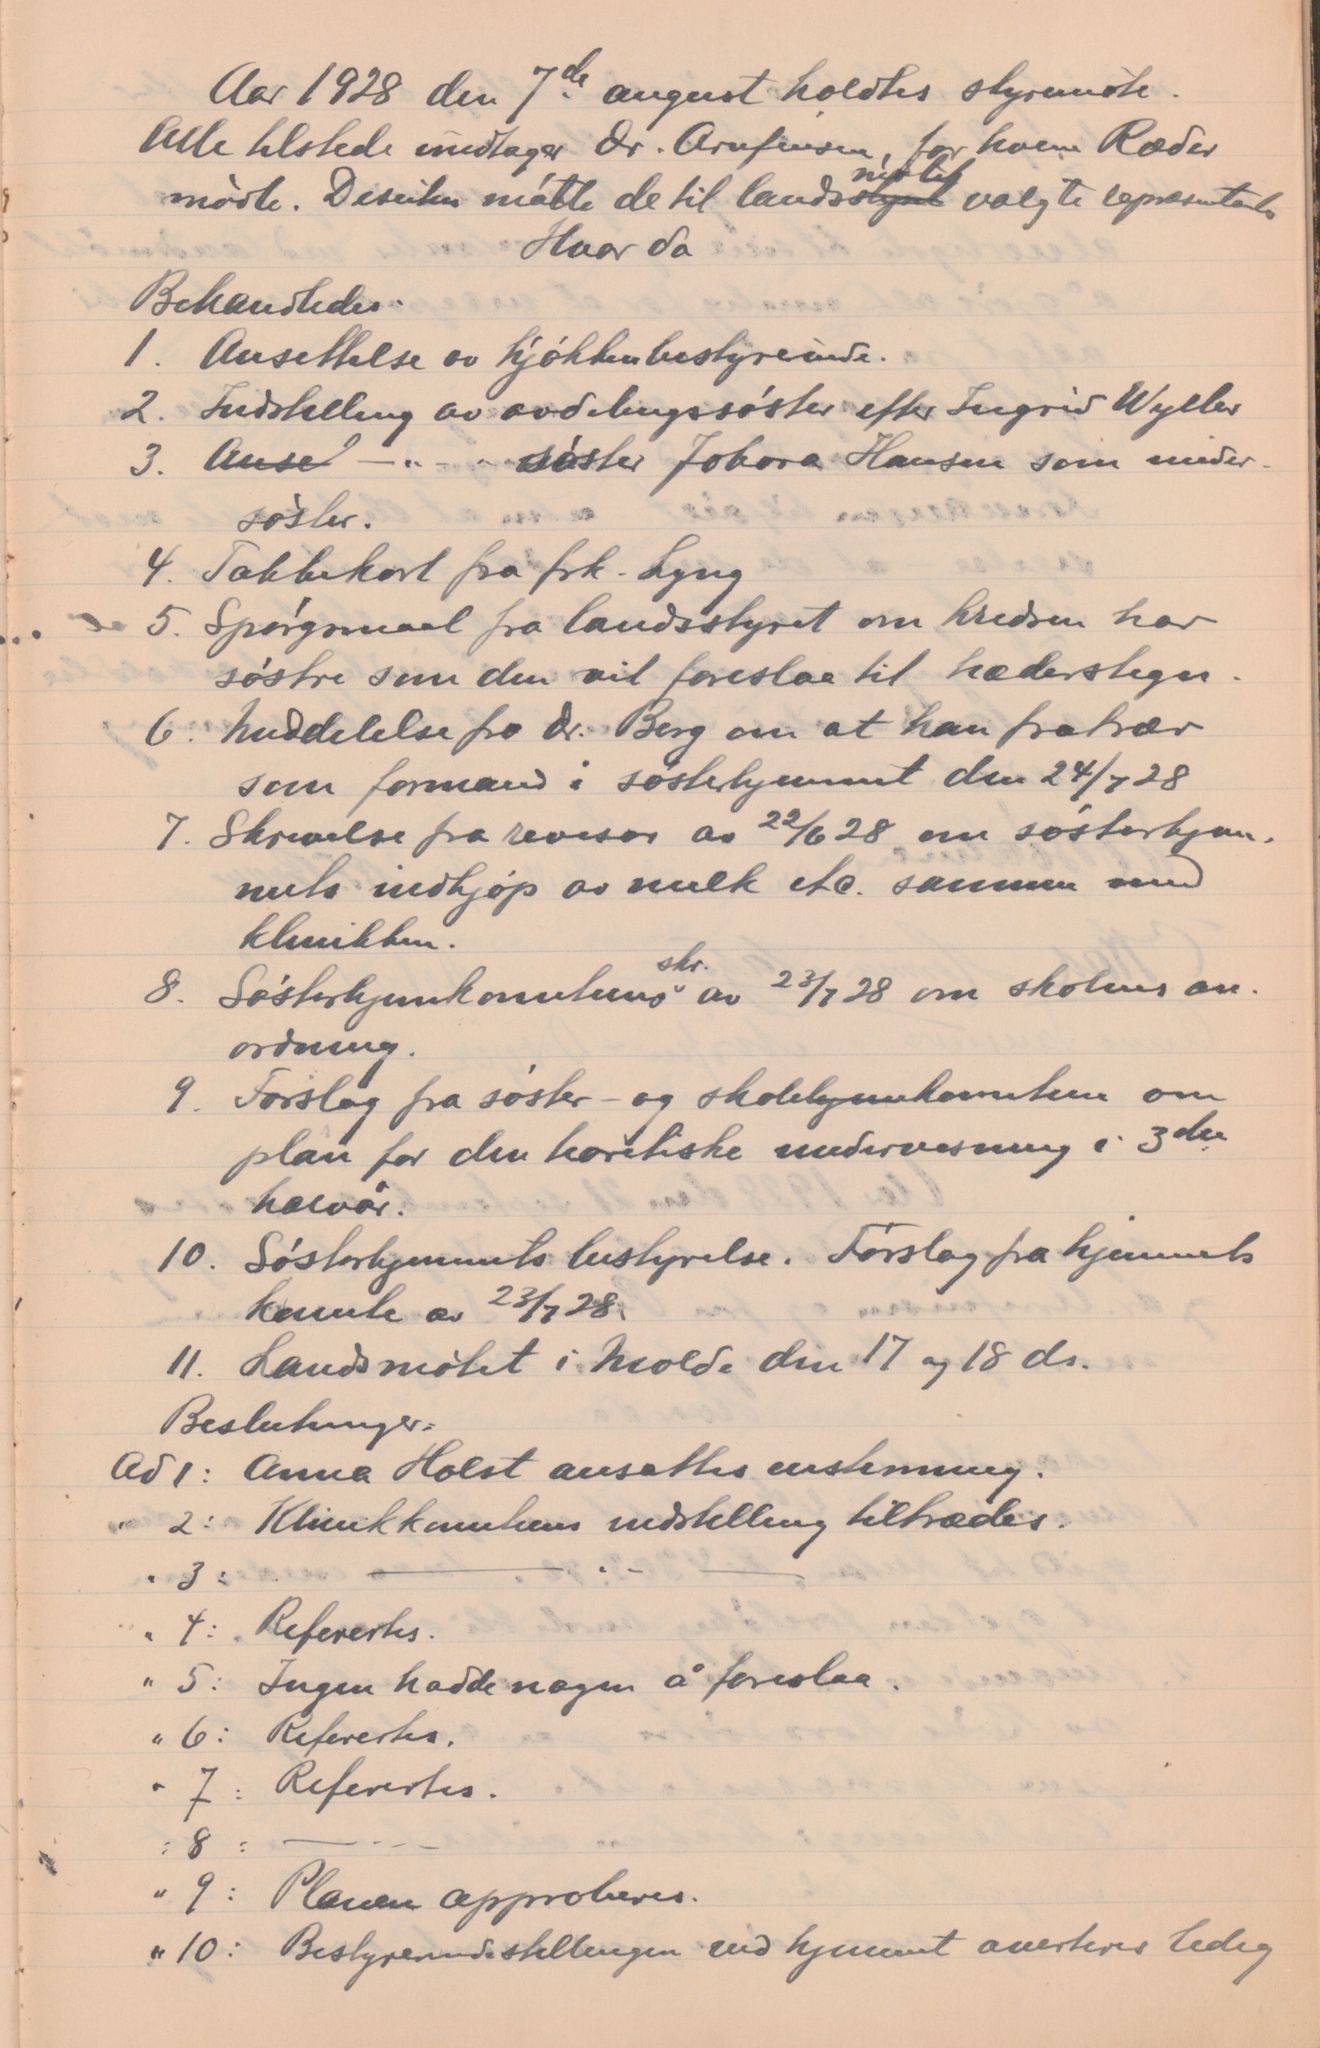 Aar 1928 den 7de august holdtes styremøte.
Alle tilstede undtager Dr. Arnfinsen, for hvem Ræder
møtte. Desuten møtte de til landsmøtet valgte repræsentanter
Hvor da
Behandledes:
1. Ansettelse av kjøkkenbestyrerinde.
2. Indstilling av avdelingssøster efter Ingrid Wyller
3. Anse -"- søster Johora Hansen som under-
søster.
4. Takkekort fra frk. Lyng
5. Spørgsmaal fra landsstyret om kredsen har
søstre som den vil foreslaa til hæderstegn.
6. Meddelelse fra Dr. Berg om at han fratrær
som formand i søsterhjemmet den 24/7 28
7. Skrivelse fra revisor av 22/6 28 om søsterhjem-
mets indkjøp av melk etc. sammen med
klinikken.
8. Søsterhjemkomiteens skr. av 23/7 28 om skolens an-
ordning.
9. Forslag fra søster- og skolehjemkomiteen om
plan for den teoretiske undervisning i 3die
halvår.
10. Søsterhjemmets bestyrelse. Forslag fra hjemmets
komite av 23/7 28.
11. Landsmøtet i Molde den 17 og 18 ds.
Beslutninger:
Ad 1: Anna Holst ansattes enstemmig.
" 2: Klinikkomiteens indstilling tiltrædes.
" 3: -"-
" 4: Referertes.
" 5: Ingen hadde nogen å foreslaa.
" 6: Referertes.
" 7: Referertes.
" 8: -"-
" 9: Planen approberes.
" 10: Bestyrerindestillingen ved hjemmet averteres ledig